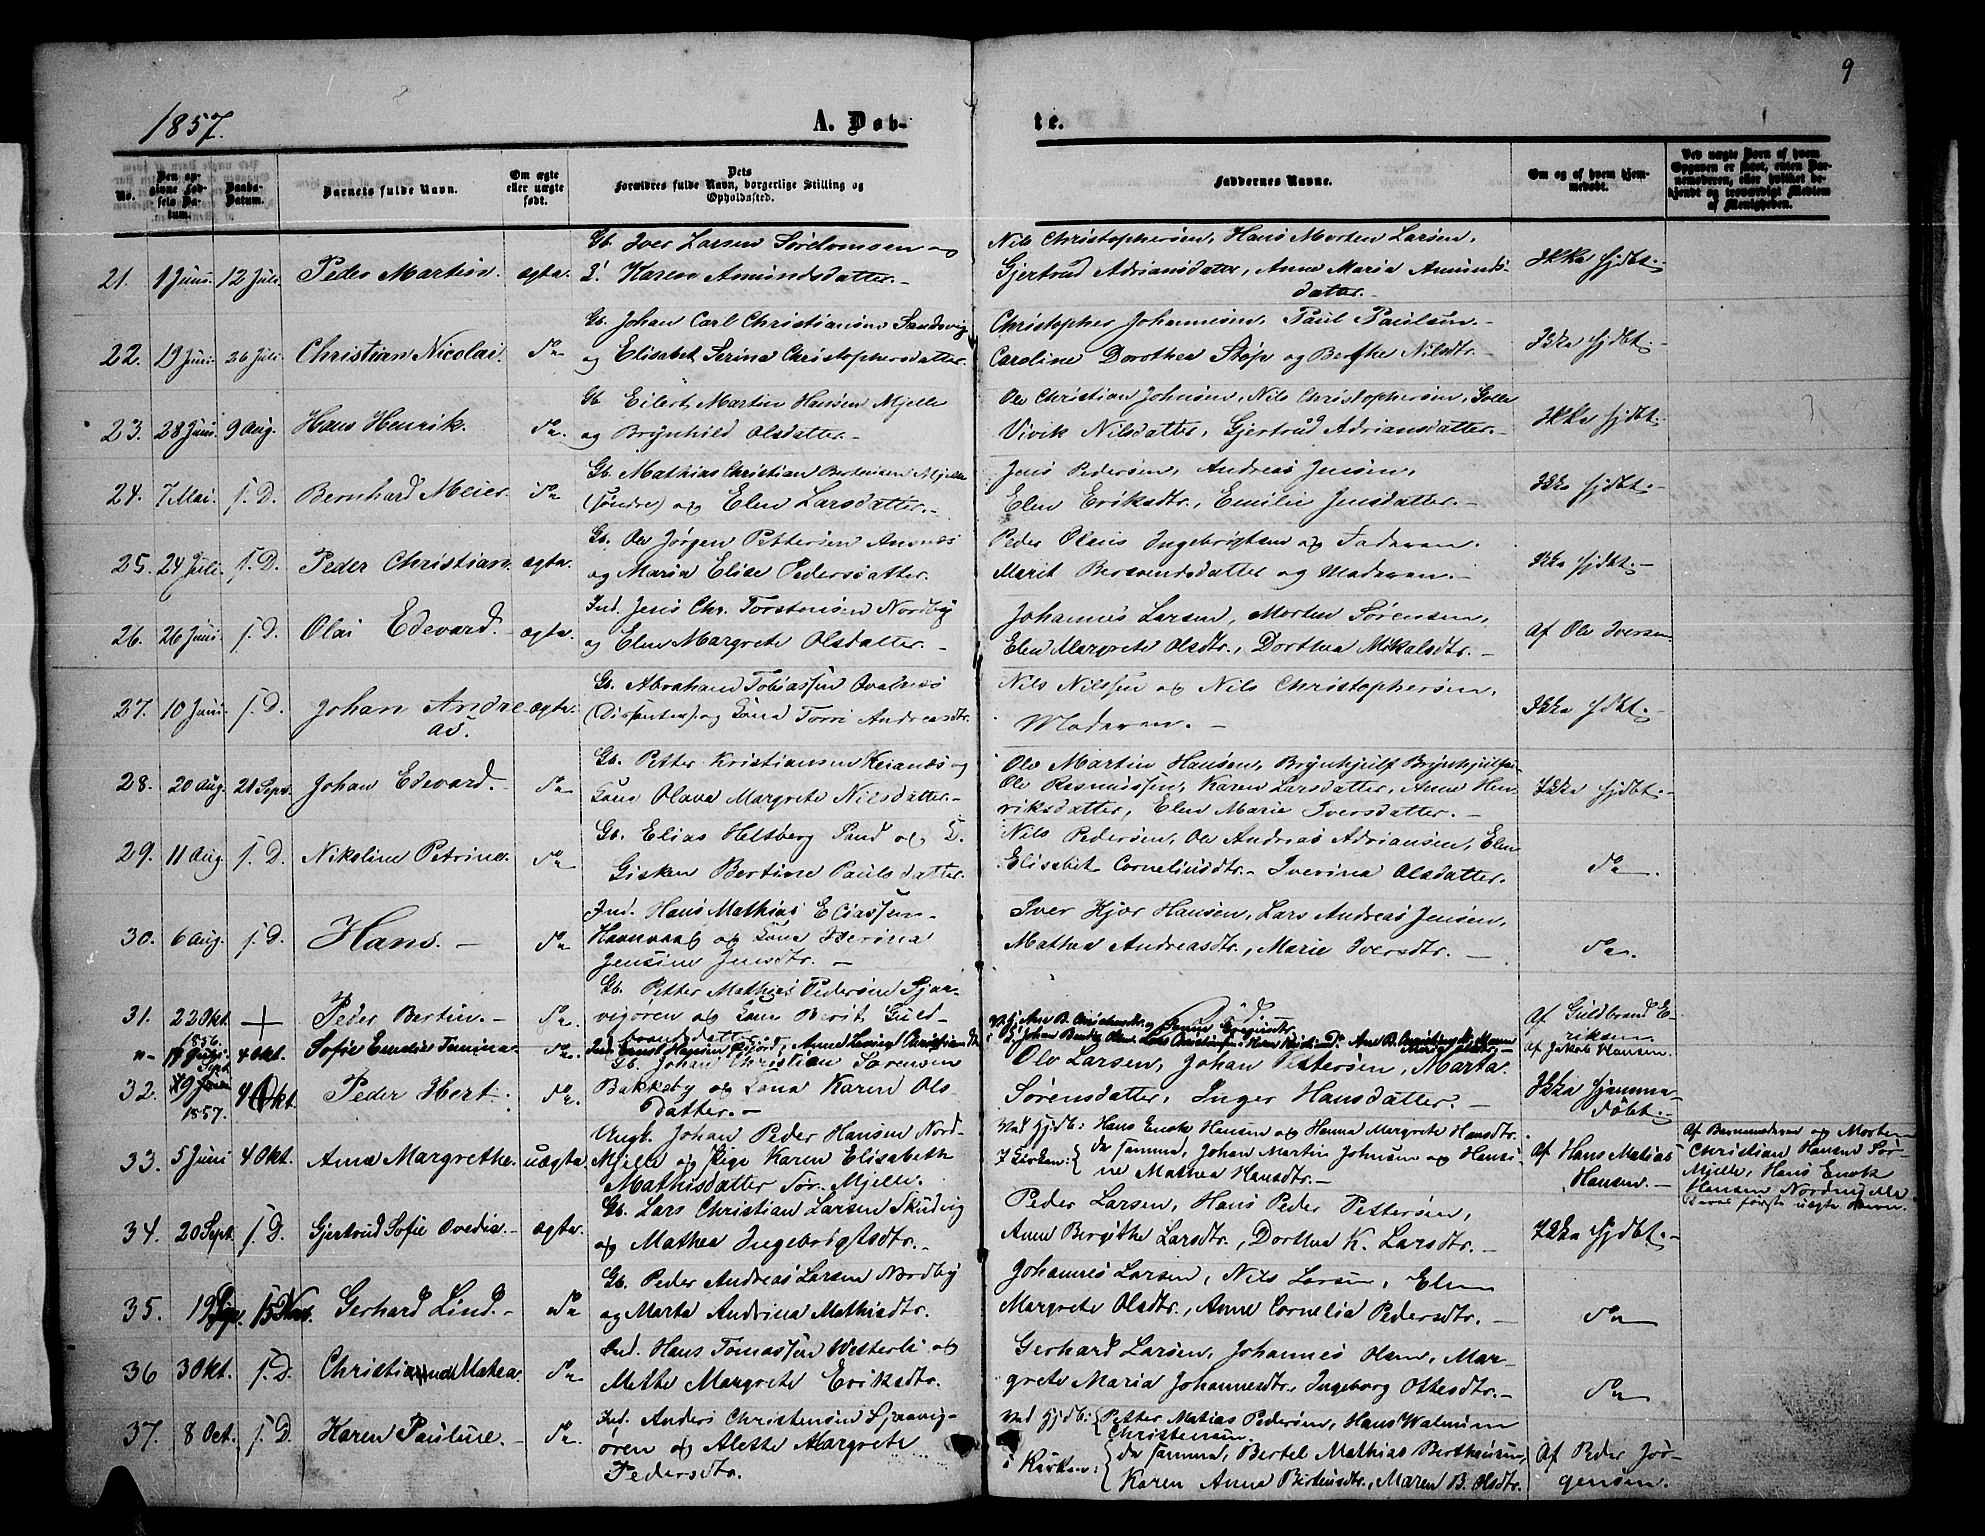 9
1857.
A. Døb-
te.
No.
Den op-
givne Fød-
sels Da-
tum.
Daabs-
Datum.
Barnets fulde Navn.
Om ægte
eller uægte
født.
Dets
Forældres fulde Navn, borgerlige Stilling og
Opholdssted.
Faddernes Navne.
Om og af hvem hjem-
medøbt.
Ved uægte Børn af hvem
Opgaven er skeet, enten Bar-
nemoderen, eller hvilket be-
kjendt og troværdigt Medlem
af Menigheden.
21. 1 Juni. 12 Juli. Peder Martin. ægte.
Gb. Iver Larsen
Karen Amundsdatter.-
Nils Christophersen, Hans Morten Larsen,
Gjertrud Adriansdatter, Anne Maria Amunds-
datter.-
Ikke hjdbt.-
22. 19 Juni. 26 Juli. Christian Nicolai.
Gb. Johan Carl Christiansen Sandvig
og Elisabet Serina Christophersdatter.
Christopher Johannesen, Paul Paulsen.-
Caroline Dorothea Støp og Berthe Nilsdtr.-
Ikke hjdbt.-
23. 28 Juni. 9 Aug. Hans Henrik.
Gb. Eilert Martin Hansen Mjelle
og Brynhild Olsdatter.-
Ole Christian Johnsen, Nils Christophersen,
Vivik Nilsdatter, Gjertrud Adriansdatter.-
Ikke hjdbt.-
24. 7 Mai. s. D. Bernhard Meier.
Gb. Mathias Christian Berteusen Mjelle
(søndre) og Elen Larsdatter.-
Jens Pedersen, Andreas Jensen,
Elen Eriksdtr., Emilie Jensdatter.-
Ikke hjdbt.-
25. 24 Juli. s. D. Peder Christian. ægte.
Gb. Ole Jørgen Pettersen
og Maria Elise Pedersdatter.
Peder Olaus Ingebrigtsen og Faderen.
Marit Bersvendsdatter og Moderen.-
Ikke hjdbt.-
26. 26 Juni. s. D. Olai Edevard.- ægte.
Ind. Jens Chr. Torstensen Nordby
og Elen Margrete Olsdatter.-
Johannes Larsen, Morten Sørensen,
Elen Margrete Olsdtr., Dorthea Mikalsdtr.-
Af Ole Iversen.
27. 10 Juni. s. D. Johan Andre- ægte.
as.
Gb. Abraham Tobiassen
(Dissenter) og Kona Andreasdtr.
Nils Nilssen og Nils Christophersen,
Moderen.-
Ikke hjdbt.-
28. 20 Aug. 21 Sept. Johan Edevard.-
Gb. Petter Kristiansen og
Kone Olava Margrete Nilsdatter.-
Ole Martin Hansen, Brynhjulf
Ole Rasmussen, Karen Larsdatter, Anne Hen-
riksdatter, Elen Marie Iversdatter.-
Ikke hjdbt.-
29. 11 Aug. s. D. Nikoline Petrine.
Gb. Elias Heltberg Sand og K.
Gisken Bertine Paulsdatter.
Nils Pedersen, Ole Andreas Adriansen, Elen
Elisabet Corneliusdtr.- Iverina Olsdatter.
30. 6 Aug. s. D. Hans.-
Ind. Hans Mathias Eliassen-
og Kone
Jensine Jensdtr.-
Iver Kjær Hansen, Lars Andreas Jensen,
Mathea Andreasdtr., Marie Iversdtr.-
31. 22 Okt. Peder Bertin.-
Gb. Petter Mathias Pedersen Sjaa-
vigøren og Kone Berit Guld-
brandsdatter.
Død.
Af Guldbrand E-
riksen.
1856.
4 Okt. Sofie Emelie Tomine.
Af Jakob Hansen.
32. 1857. 4 Okt. Peder Hert.
Gb. Johan Christian Sørensen
Bakkeby og Kona Karen Ols
datter.-
Ole Larsen, Johan Pettersen, Marta
Sørensdatter, Inger Hansdatter.-
Ikke hjemme-
døbt.-
33. 5 Juni 4 Okt. Anne Margrethe. uægte.
Ungk. Johan Peder Hansen Nord-
Mjelle og Pige Karen Elisabeth
Mathisdatter Sør-Mjelle.
Ved hjdb: Hans Enok Hansen og Hanna Margrete Hansdtr.
I Kirken: de samme, Johan Martin Johnsen og Hansi-
ne Mathea Hansdtr.-
Af Hans Matias
Hansen.-
Af Barnemoderen og Morten
Christian Hansen Sør-
Mjelle, Hans Enok
Hansen Nordmjelle
første uægte Barn.
34. 20 Sept. s. D. Gjertrud Sofie Ovedia. ægte.
Gb. Lars Christian Larsen Skudvig
og Mathea Ingebrigtsdtr.-
Peder Larsen, Hans Peder Pettersen,
Anne Birgithe Larsdtr., Dorthea K. Larsdtr.-
Ikke hjdbt.-
35. 19 15 Nov. Gerhard Lind.-
Gb. Peder Andreas Larsen Nordby
og Marta Andrina Mathiasdtr.
Johannes Larsen, Nils Larsen, Elen
Margrete Olsdtr., Anne Cornelia Pedersdtr.-
36 3 Okt. s. D. Matea.
Ind. Hans Tomassen Westerli og
Mette Margrete Eriksdtr.
Gerhard Larsen, Johannes Olsen, Mar-
grete Maria Johannesdtr., Ingeborg Ottesdtr.-
37. 8 Oct. s. D. Karen Pauline.-
Ind. Anders Christensen Sjaavig-
øren og Alette Margrete
Pedersdtr.
Ved hjdb: Petter Matias Pedersen, Hans
Christensen.
i Kirken: de samme, Bertel Mathias Bertheusen,
Karen Anna Bertheusdtr., Maren B. Olsdtr.
Af Peder Jør-
gensen.